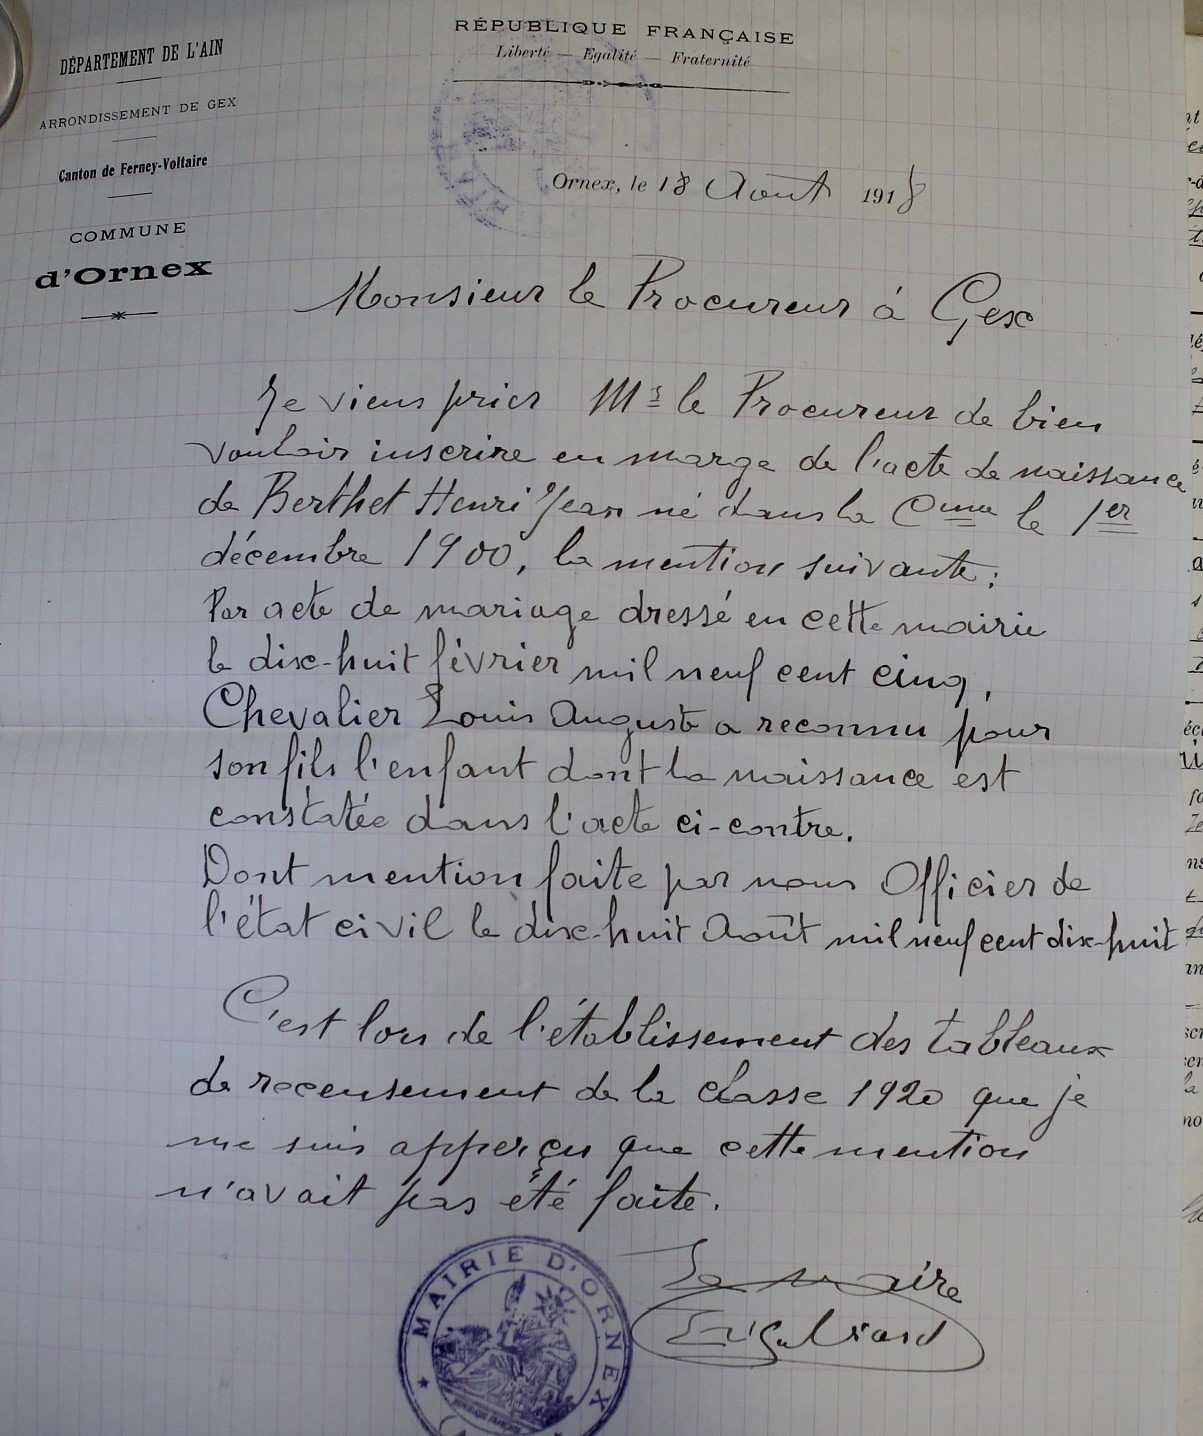 RÉPUBLIQUE FRANÇAISE
Liberté — Egalité — Fraternité
DÉPARTEMENT DE L'AIN
ARRONDISSEMENT DE GEX
Canton de Ferney-Voltaire
COMMUNE
d'Ornex
Ornex, le 18 Août 1918
Monsieur le Procureur à Gex
Je viens prier Mr le Procureur de bien
vouloir inscrire en marge de l'acte de naissance
de Berthet Henri Jean né dans la Cmune le 1er
décembre 1900, la mention suivante :
Par acte de mariage dressé en cette mairie
le dix-huit février mil neuf cent cinq,
Chevalier Louis Auguste a reconnu pour
son fils l'enfant dont la naissance est
constatée dans l'acte ci-contre.
Dont mention faite par nous Officier de
l'état civil le dix-huit Août mil neuf cent dix-huit
C'est lors de l'établissement des tableaux
de recensement de la classe 1920 que je
me suis apperçu que cette mention
n'avait pas été faite.
Le maire
MAIRIE D'ORNEX